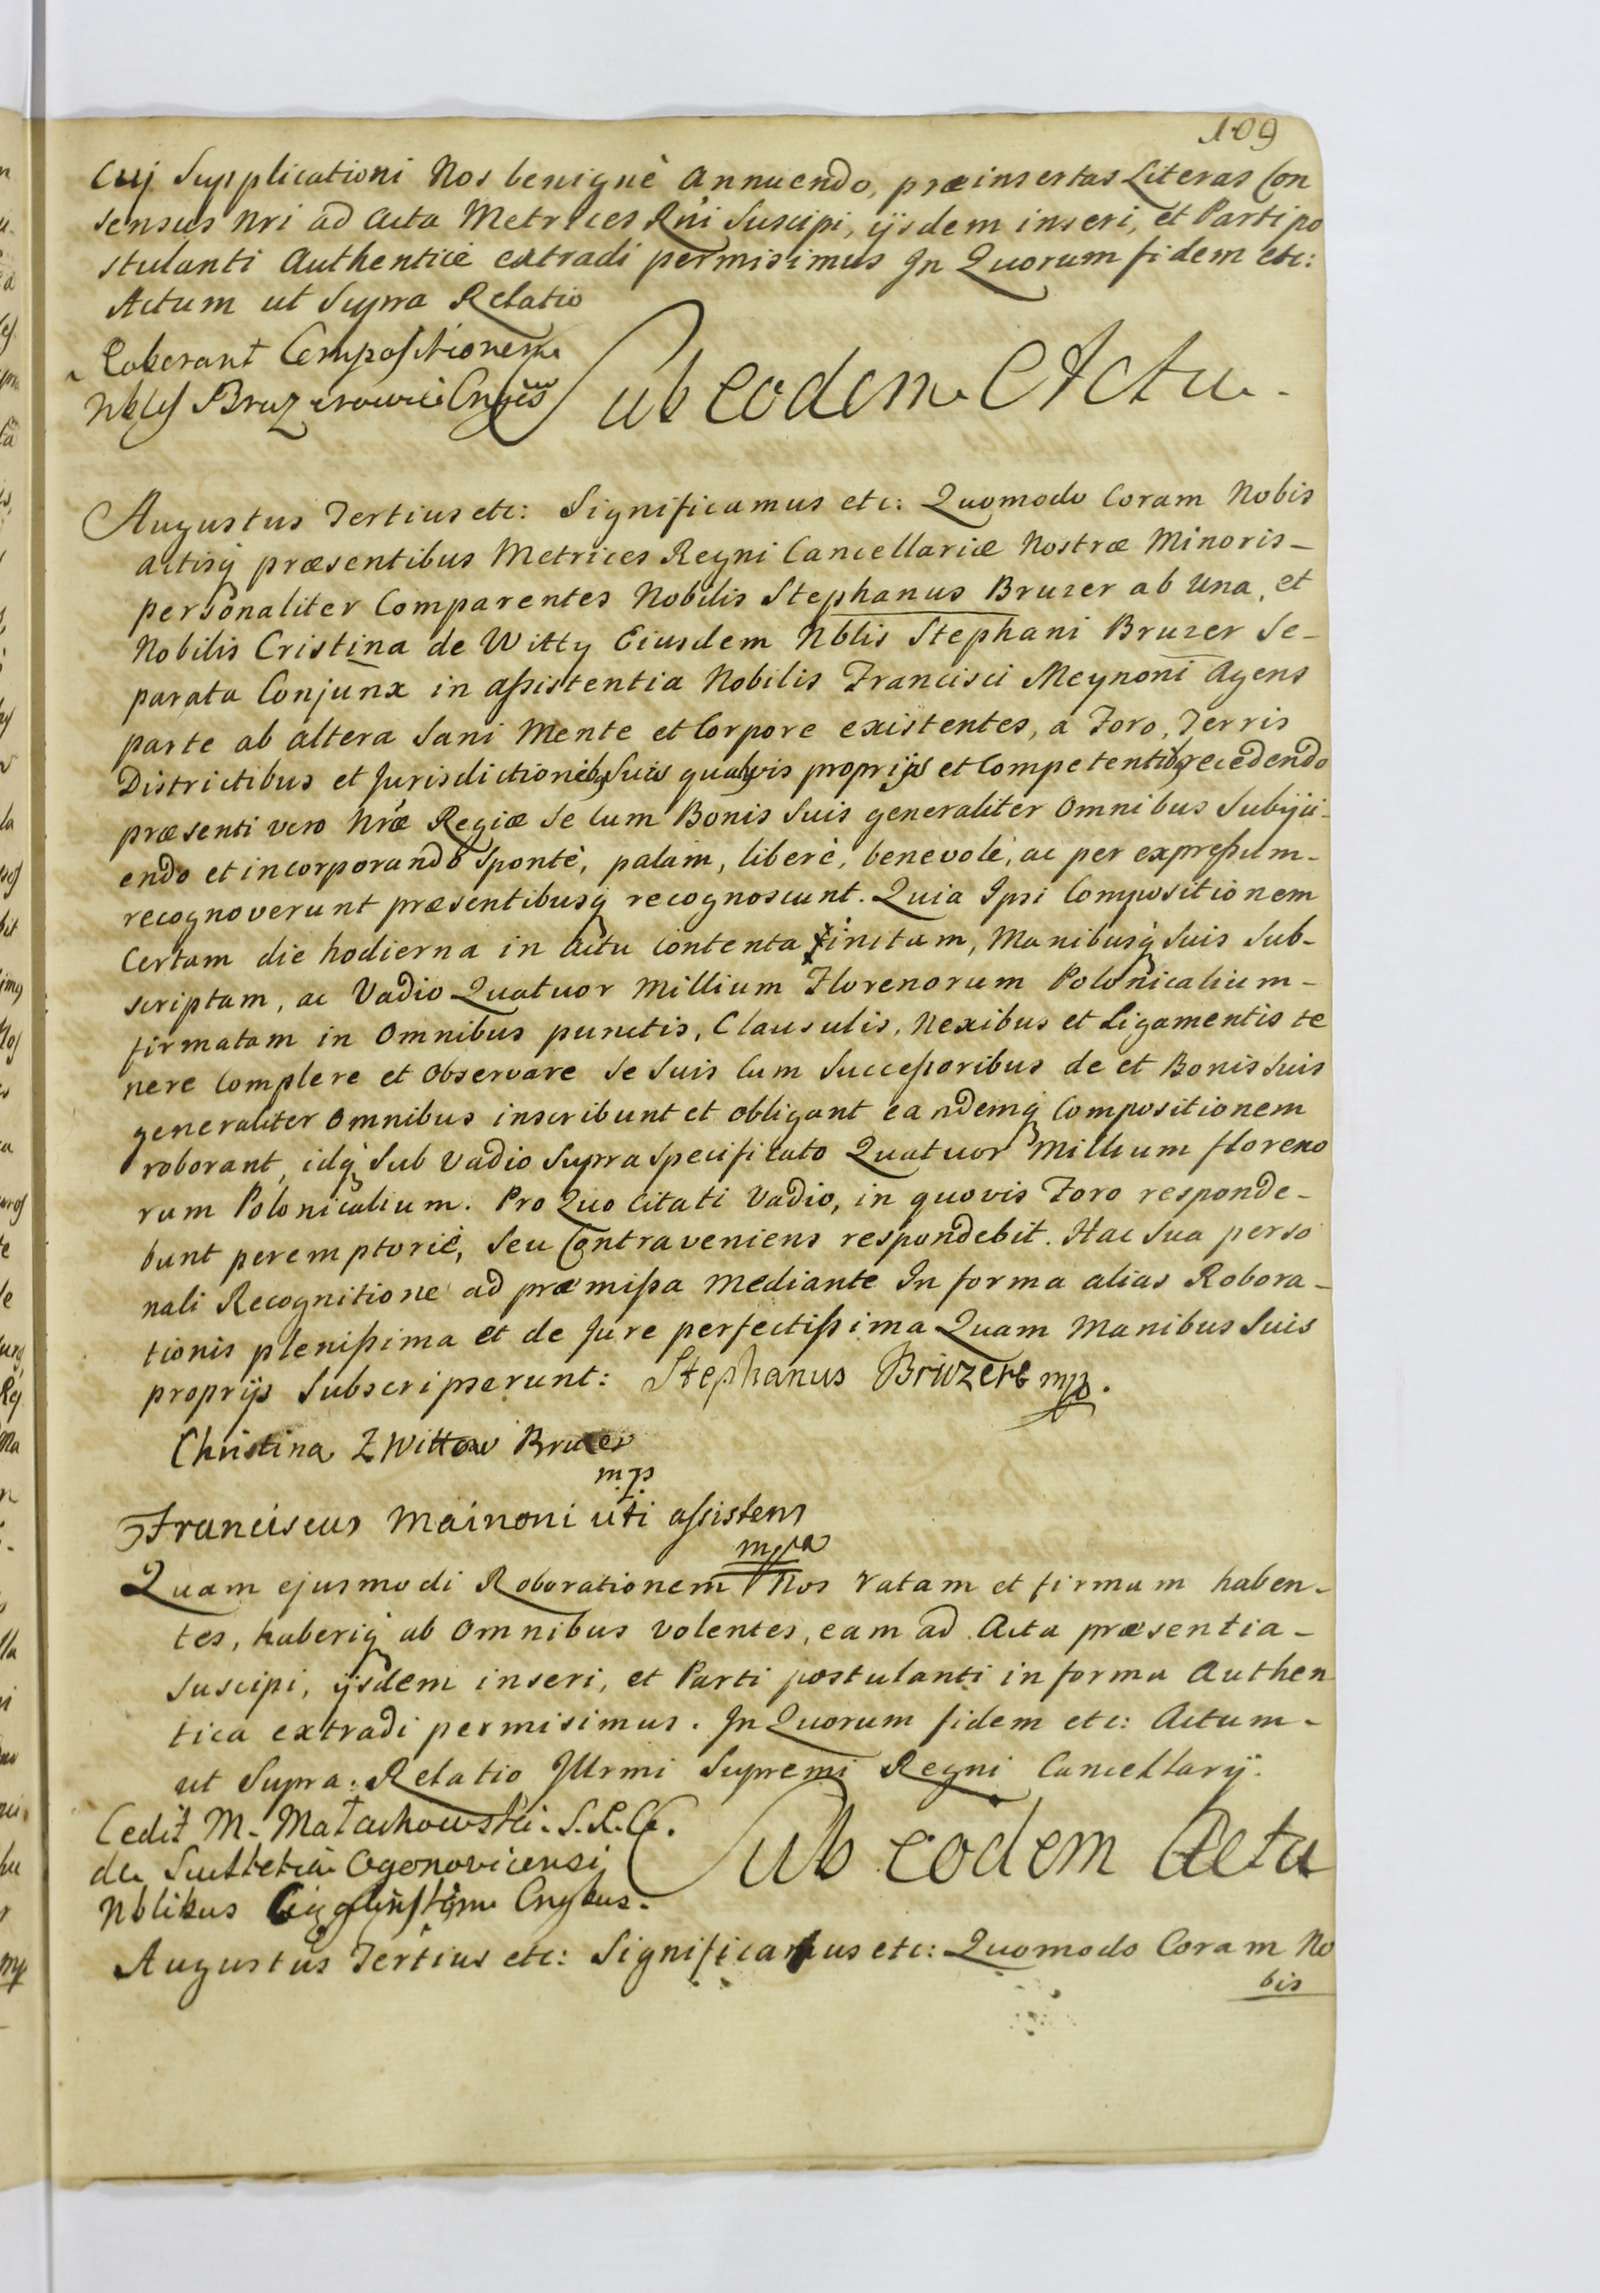 109
Cuj Supplicationi Nos benignè annuendo, præinsertas Literas Con
sensus Nri ad Acta Metrices Rni Suscipi, ijsdem inseri, et Parti po
stulanti Authenticè extradi permisimus In Quorum fidem etc:
Actum ut Supra Relatio
Roborant Compositionem
Nbles Bruzerowie Cnges
Sub eodem Actu.
Augustus Tertius etc: Significamus etc: Quomodo Coram Nobis
actisq præsentibus Metrices Regni Cancellariæ Nostræ Minoris
personaliter Comparentes Nobilis Stephanus Bruzer ab Una, et
Nobilis Cristina de Witty Eiusdem Nblis Stephani Bruzer Se-
parata Conjunx in assistentia Nobilis Francisci Meynoni Agens
parte ab altera Sani Mente et Corpore existentes, a Foro, Terris
Districtibus et Jurisdictionibq Suis quibvis proprijs et Competentibq recedendo
præsenti vero Nræ Regiæ se Cum Bonis Suis generaliter Omnibus Subijci-
endo et incorporando Spontè, palam, liberè, benevolè, ac per expressum
recognoverunt præsentibusq recognoscunt. Quia Ipsi Compositionem
Certam die hodierna in Actu Contenta initam, Manibusq Suis Sub-
scriptam, ac Vadio Quatuor Millium Florenorum Polonicalium
firmatam in Omnibus punctis, Clausulis, Nexibus et Ligamentis te
nere Complere et Observare Se Suis Cum Successoribus de et Bonis Suis
generaliter Omnibus inscribunt et obligant eandemq Compositionem
roborant, idq Sub Vadio Supra Specificato Quatuor Millium floreno
rum Polonicalium. Pro Quo Citati Vadio, in quovis Foro responde-
bunt peremptoriè, Seu Contraveniens respondebit. Hac Sua perso
nali Recognitione ad præmissa Mediante In forma alias Robora-
tionis plenissima et de Jure perfectissima Quam Manibus Suis
proprijs Subscripserunt: Stephanus Briuzere mp.
Christina Z Wittow Bruzer
mp.
Franciscus Mainoni uti assistens
mppa
Quam ejusmodi Roborationem Nos ratam et firmam haben-
tes, haberiq ab Omnibus Volentes, eam ad Acta præsentia
Suscipi, ijsdem inseri, et Parti postulanti in forma Authen
tica extradi permisimus. In Quorum fidem etc: Actum
ut Supra. Relatio Illrmi Supremi Regni Cancellarij.
Cedit M. Małachowski. S.R.C.
de Scultetia Ogonovicensi
Nblibus Cngbus.
Sub eodem Actu
Augustus Tertius etc: Significamus etc: Quomodo Coram No
bis